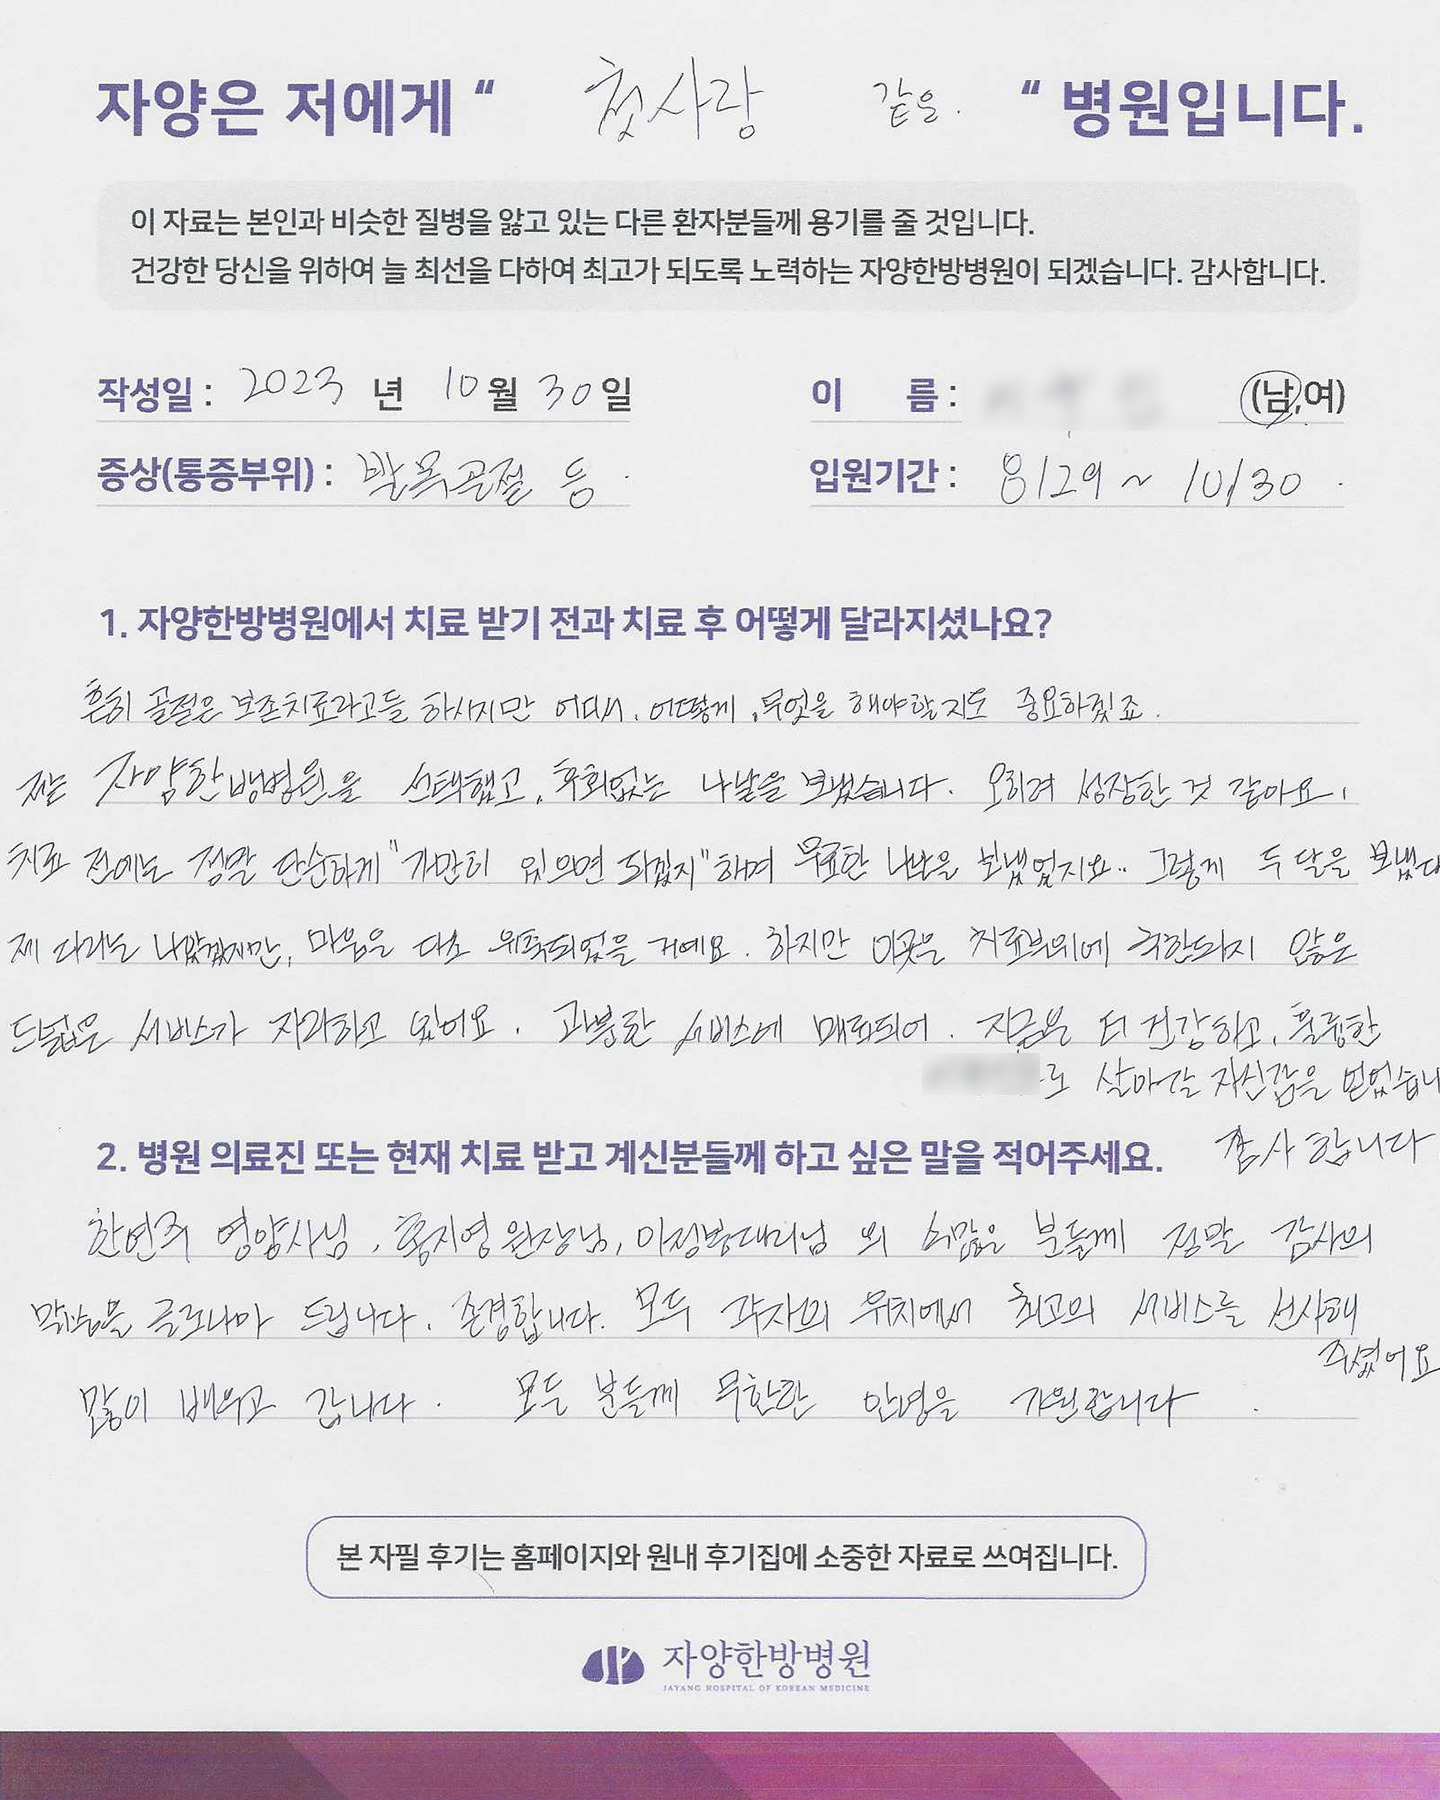 자양은 저에게 “ 첫사랑 같은. “ 병원입니다.
이 자료는 본인과 비슷한 질병을 앓고 있는 다른 환자분들께 용기를 줄 것입니다.
건강한 당신을 위하여 늘 최선을 다하여 최고가 되도록 노력하는 자양한방병원이 되겠습니다. 감사합니다.
작성일 : 2023 년 10월 30일
이 름 : (남,여)
증상(통증부위) : 발목골절 등.
입원기간 : 8/29 ~ 10/30.
1. 자양한방병원에서 치료 받기 전과 치료 후 어떻게 달라지셨나요?
흔히 골절은 보존치료라고들 하시지만 어디서, 어떻게, 무엇을 해야할지도 중요하겠죠.
저는 자양한방병원을 선택했고, 후회없는 나날을 보냈습니다. 오히려 성장한 것 같아요.
치료 전에는 정말 단순하게 "가만히 있으면 되겠지" 하며 무료한 나날을 보냈었지요.. 그렇게 두 달을 보냈다
제 다리는 나았겠지만, 마음은 다소 위축되었을 거예요. 하지만 이곳은 치료부위에 국한되지 않은
드넓은 서비스가 자리하고 있어요. 과분한 서비스에 매료되어. 지금은 더 건강하고, 훌륭한
로 살아갈 자신감을 얻었습니
감사합니다
2. 병원 의료진 또는 현재 치료 받고 계신분들께 하고 싶은 말을 적어주세요.
한연주 영양사님, 홍지영 원장님, 이정봉대리님 외 수많은 분들께 정말 감사의
말씀을 글로나마 드립니다. 존경합니다. 모두 각자의 위치에서 최고의 서비스를 선사해
주셨어요
많이 배우고 갑니다. 모든 분들께 무한한 안녕을 기원합니다.
본 자필 후기는 홈페이지와 원내 후기집에 소중한 자료로 쓰여집니다.
자양한방병원
JAYANG HOSPITAL OF KOREAN MEDICINE